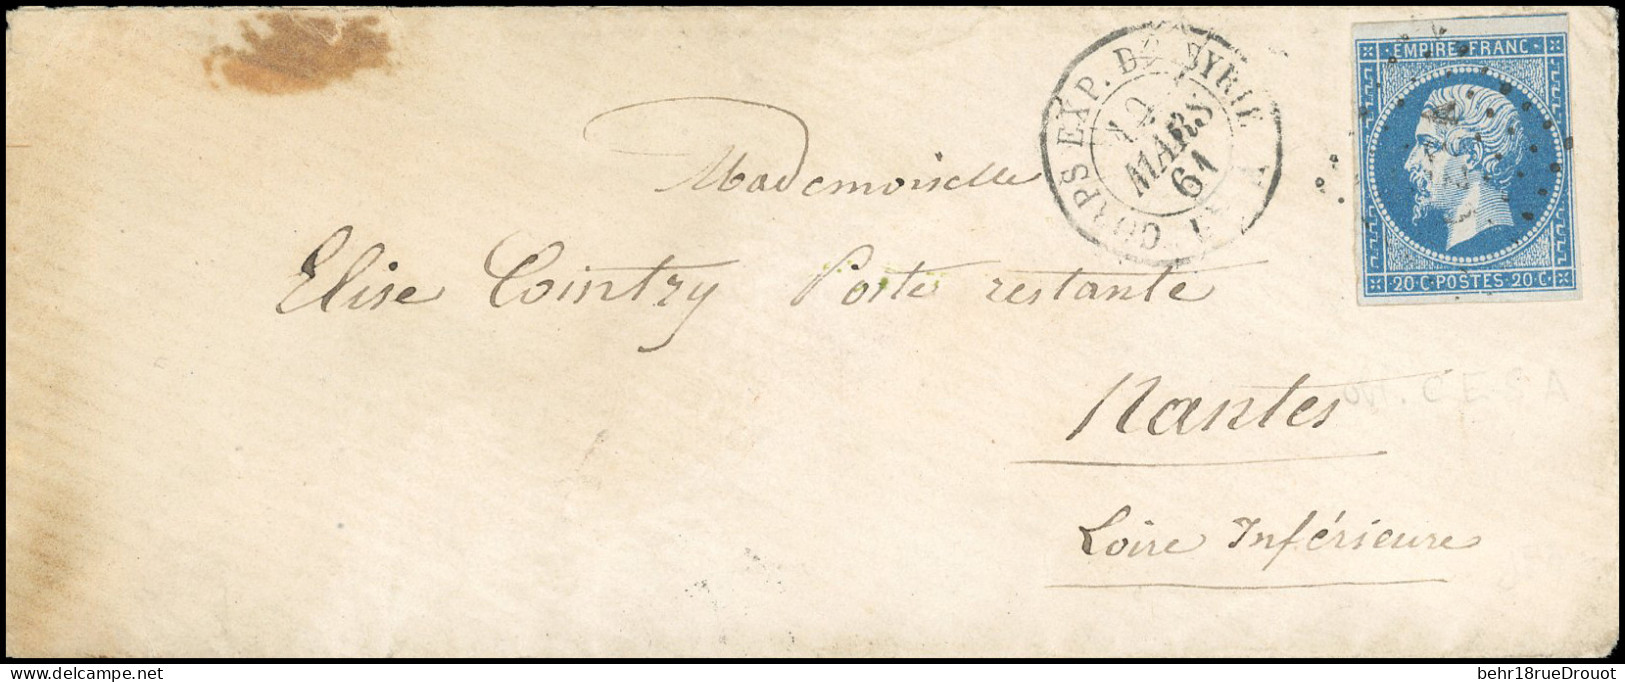 EMPIRE FRANC
CORPS EXP. DE SYRIE
MARS
61
20·C·POSTES·20·C·
Mademoiselle
Elise Cointry Poste restante
Nantes
Loire Inférieure
C.E.S A
behr18rueDrouot